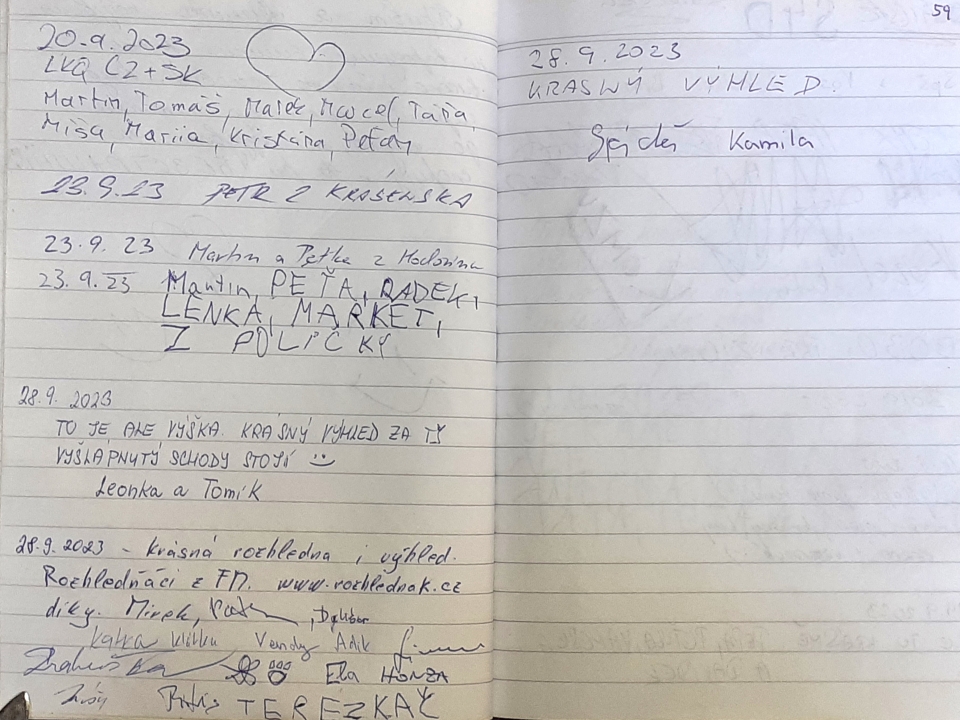 20.9.2023
LKQ CZ+SK
Martin, Tomáš, Marek, Marcel, Táňa,
Míša, Mariia, Kristána, Peťan
23.9.23 PETR Z KRÁSENSKA
23.9.23 Martin a Peťka z Hodonína
23.9.23 Martin, PEŤA, RADEK,
LENKA, MARKET,
Z POLIČKY
28.9. 2023
TO JE ALE VÝŠKA. KRÁSNÝ VÝHLED ZA TY
VYŠLÁPNUTÝ SCHODY STOJÍ
Leonka a Tomík
28.9.2023 - krásná rozhledna i výhled.
Rozhledňáci z FM. www.rozhlednak.cz
díky. Mirek, , Dalibor
Katka Vendy Adik
Ela HONZA
TEREZKAČ
59
28.9.2023
KRASNÝ VÝHLED
Kamila